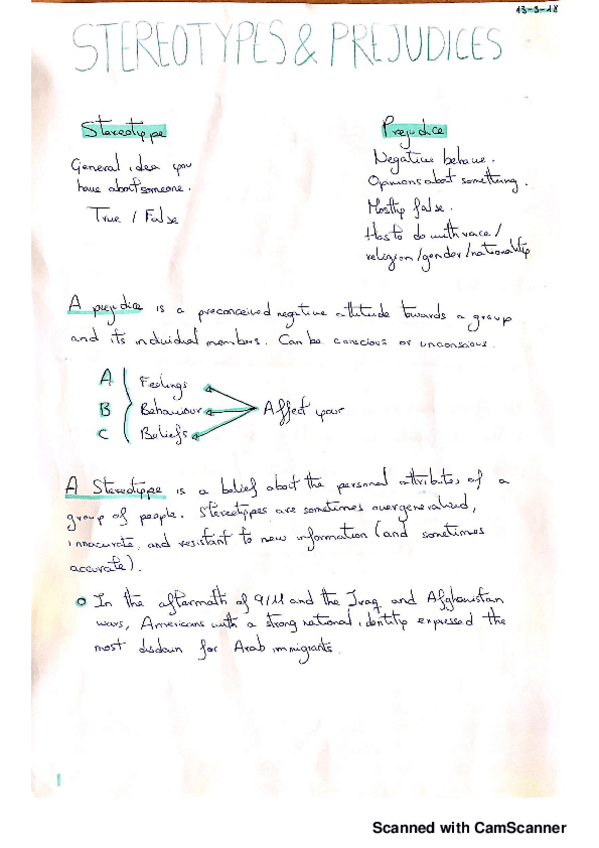 13-3-18
STEREOTYPES & PREJUDICES
Stereotype
General idea you
have about someone.
True / False
Prejudice
Negative behave.
Opinions about something.
Mostly false.
Has to do with race /
religion / gender / nationality
A prejudice is a preconceived negative attitude towards a group
and its individual members. Can be conscious or unconscious.
A Feelings
B Behaviour
C Beliefs
Affect your
A Stereotype is a belief about the personal attributes of a
group of people. Stereotypes are sometimes overgeneralized,
innacurate, and resistant to new information (and sometimes
accurate).
In the aftermath of 9/11 and the Iraq and Afghanistan
wars, Americans with a strong national identity expressed the
most disdain for Arab immigrants.
1
Scanned with CamScanner